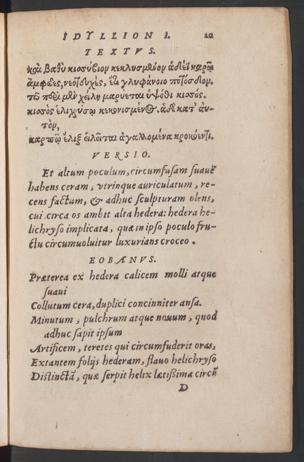 IDYLLION I.
TEXTVS.
καὶ βαθὺ κισσύβιον κεκλυσμένον ἁδέϊ καρῷ
ἀμφῶες, νεοτευχὲς, ἔτι γλυφάνοιο ποτόσδον.
τῶ ποτὶ μὲν χείλη μαρύεται ὑψόθι κισσός.
κισσὸς ἑλιχρύσῳ κεκονιμένος. ἁ δὲ κατ' αὐ-
τὸν,
καρπῷ ἕλιξ εἱλεῖται ἀγαλλομένα κροκόεντι.
VERSIO.
Et altum poculum, circumfusam suaue
habens ceram, vtrinque auriculatum, re-
cens factum, & adhuc sculpturam olens,
cui circa os ambit alta hedera: hedera he-
lichryso implicata, quæ in ipso poculo fru-
ctu circumuoluitur luxurians croceo.
EOBANVS.
Præterea ex hedera calicem molli atque
suaui
Collutum cera, duplici concinniter ansa.
Minutum, pulchrum atque nouum, quod
adhuc sapit ipsum
Artificem, teretes qui circumfuderit oras,
Extantem folijs hederam, flauo helichryso
Distinctā, quæ serpit helix lætißima circū
D